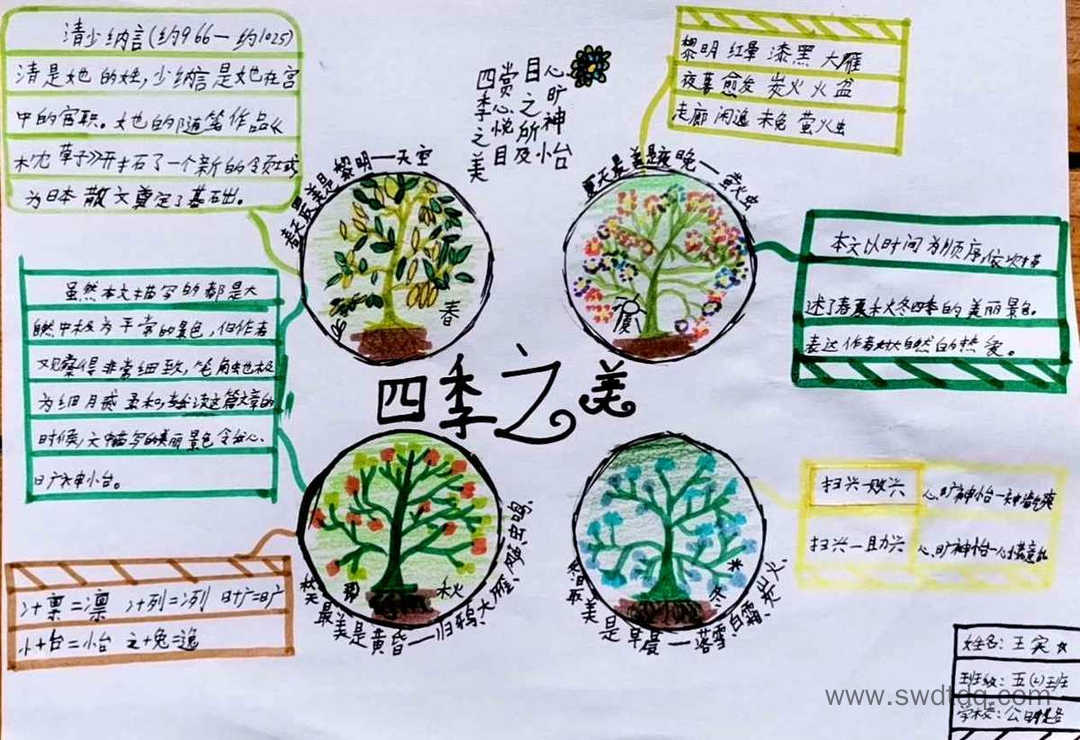 清少纳言(约966一约1025)
清是她的姓,少纳言是她在宫
中的官职。她的随笔作品《
枕草子》开拓了一个新的领域
为日本散文奠定了基础出。
四季之美
赏心悦目
目之所及
心旷神怡
黎明 红晕 漆黑 大雁
夜幕 愈发 炭火 火盆
走廊 闲逸 未免 萤火虫
春天最美是黎明一天空
春
夏天最美是夜晚一萤火虫
夏
本文以时间为顺序,依次描
述了春夏秋冬四季的美丽景色。
表达作者对大自然的热爱。
虽然本文描写的都是大
自然中极为平常的景色,但作者
观察得非常细致,笔触也极
为细腻柔和,读这篇文章的
时候,文中描写的美丽景色令人心
旷神怡。
四季之美
秋天最美是黄昏一归鸦、大雁、风声、虫鸣
秋
冬天最美是早晨一落雪、白霜、炭火
冬
扫兴一败兴
心旷神怡一神清气爽
扫兴一助兴
心旷神怡一心慌意乱
冫+禀=凛 冫+列=冽 日+广=旷
忄+台=怡 辶+兔=逸
姓名:王
班级:五(2)班
学校:公明
www.swdtdq.com